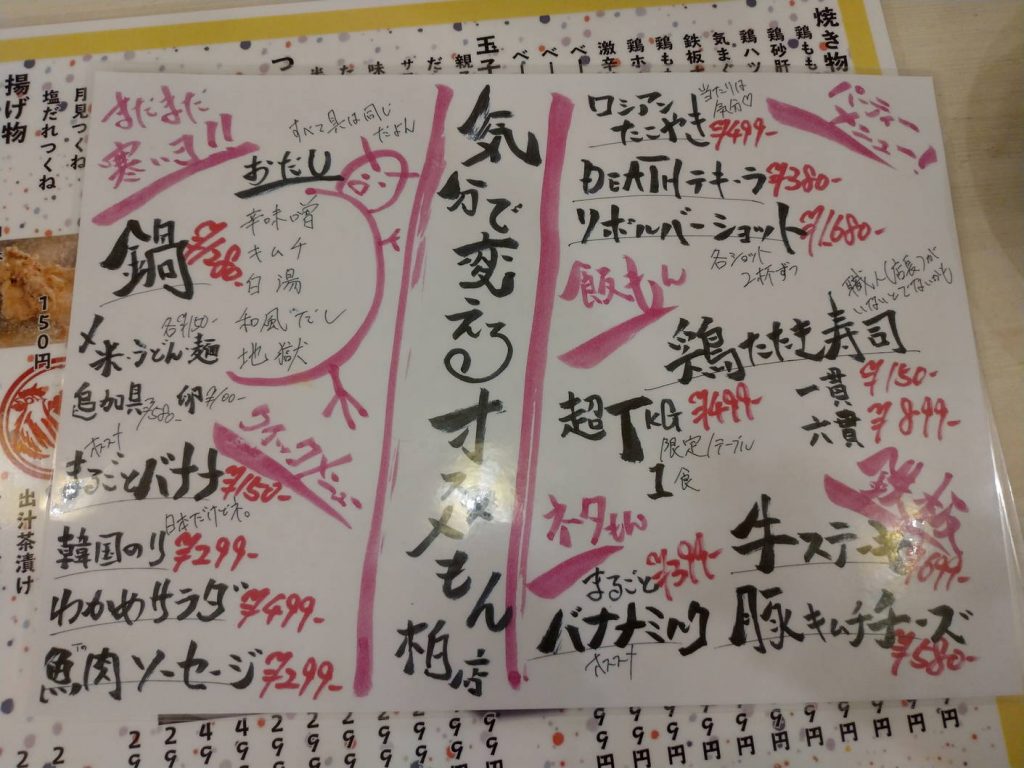 まだまだ
寒いヨ!!
すべて具は同じ
だよん
おだし
鍋
辛味噌
キムチ
白湯
和風だし
地獄
〆米・うどん・麺
各¥150-
追加具
卵 ¥100-
クイックメニュー
オススメ
まるごとバナナ ¥150-
日本だけどネ。
韓国のり ¥299-
わかめサラダ ¥499-
魚肉ソーセージ ¥299-
気分で変えるオススメもん
柏店
パーティー
メニュー!
ロシアン
たこやき ¥499-
当たりは
気分♡
DEATHテキーラ ¥380-
リボルバーショット ¥1,680-
各ショット
2杯ずつ
飯もん
職人(店長)が
いないとでないかも
鶏たたき寿司
一貫 ¥150-
六貫 ¥899-
超TKG ¥499-
限定1テーブル
1食
ネタもん
まるごと ¥394-
バナナミルク
オススメ
鉄板
牛ステーキ
豚キムチチーズ
¥580-
焼き物
揚げ物
月見つくね
塩だれつくね
150円
出汁茶漬け